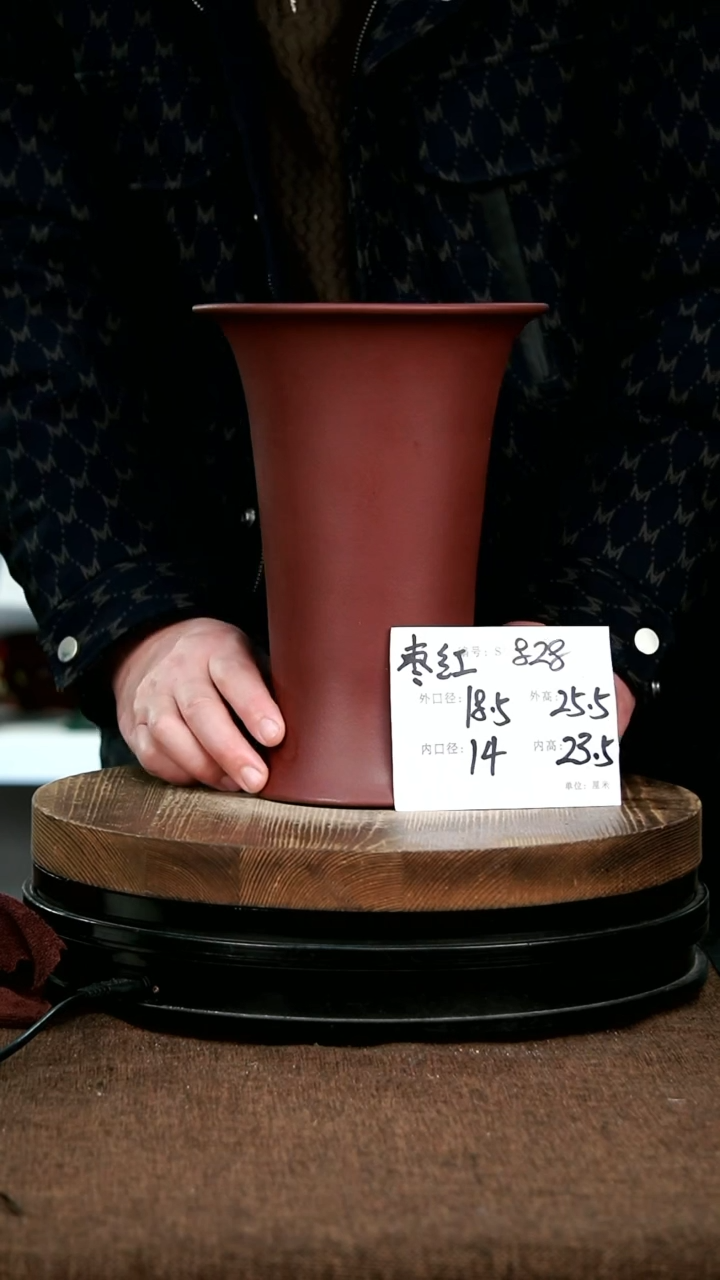 枣红 编号：S 828
外口径：18.5 外高：25.5
内口径：14 内高：23.5
单位：厘米